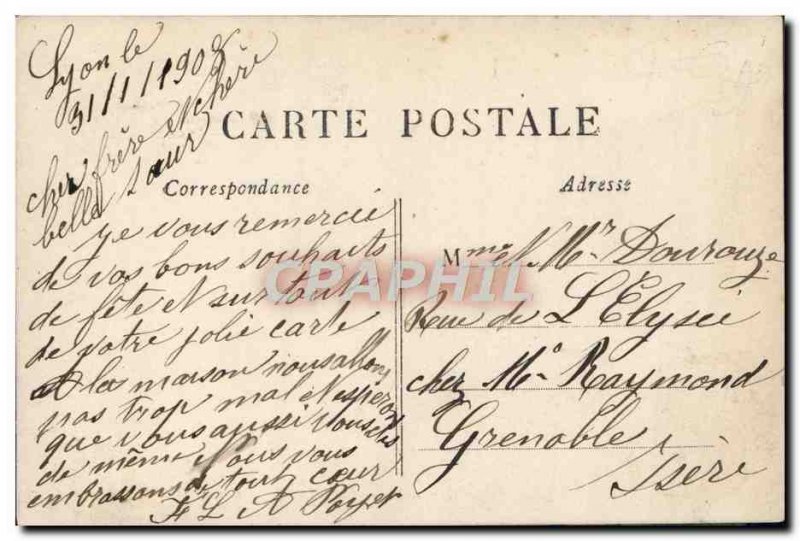 Lyon le
31/1/1908
cher frère et chère
belle sœur
CARTE POSTALE
Correspondance
Adresse
Je vous remercie
de vos bons souhaits
de fête et surtout
de votre jolie carte
A la maison nous allons
pas trop mal et espérons
que vous aussi vous êtes
de même Nous vous
embrassons de tout cœur
F L A Poyet
Mme et Mr Dourouze
Rue de L'Elysée
chez Mr Raymond
Grenoble
Isère
CPAPHIL